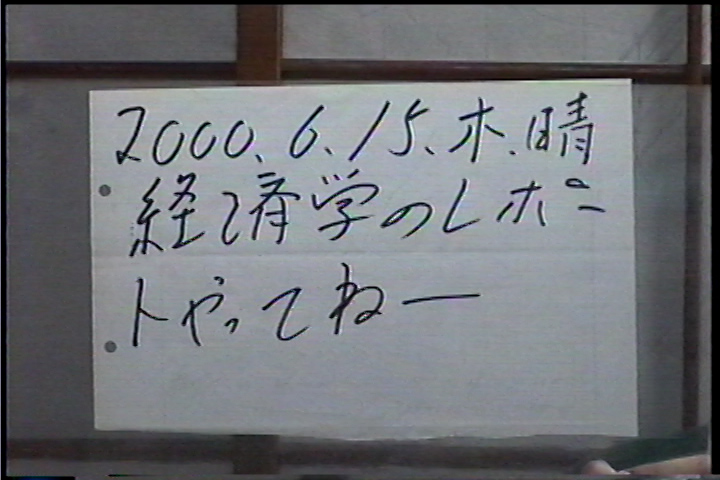 2000、6、15、木、晴
経済学のレポー
トやってねー